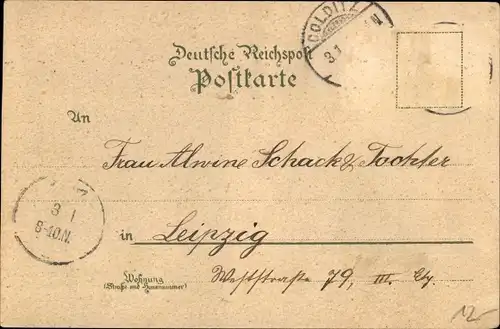 COLDITZ
3.1
N
Deutsche Reichspost
Postkarte
An
Frau Alwine Schack & Tochter
3 1
8-10.N.
in Leipzig
Wohnung
(Straße und Hausnummer)
Weststrasse 79, III. Etg.
12-